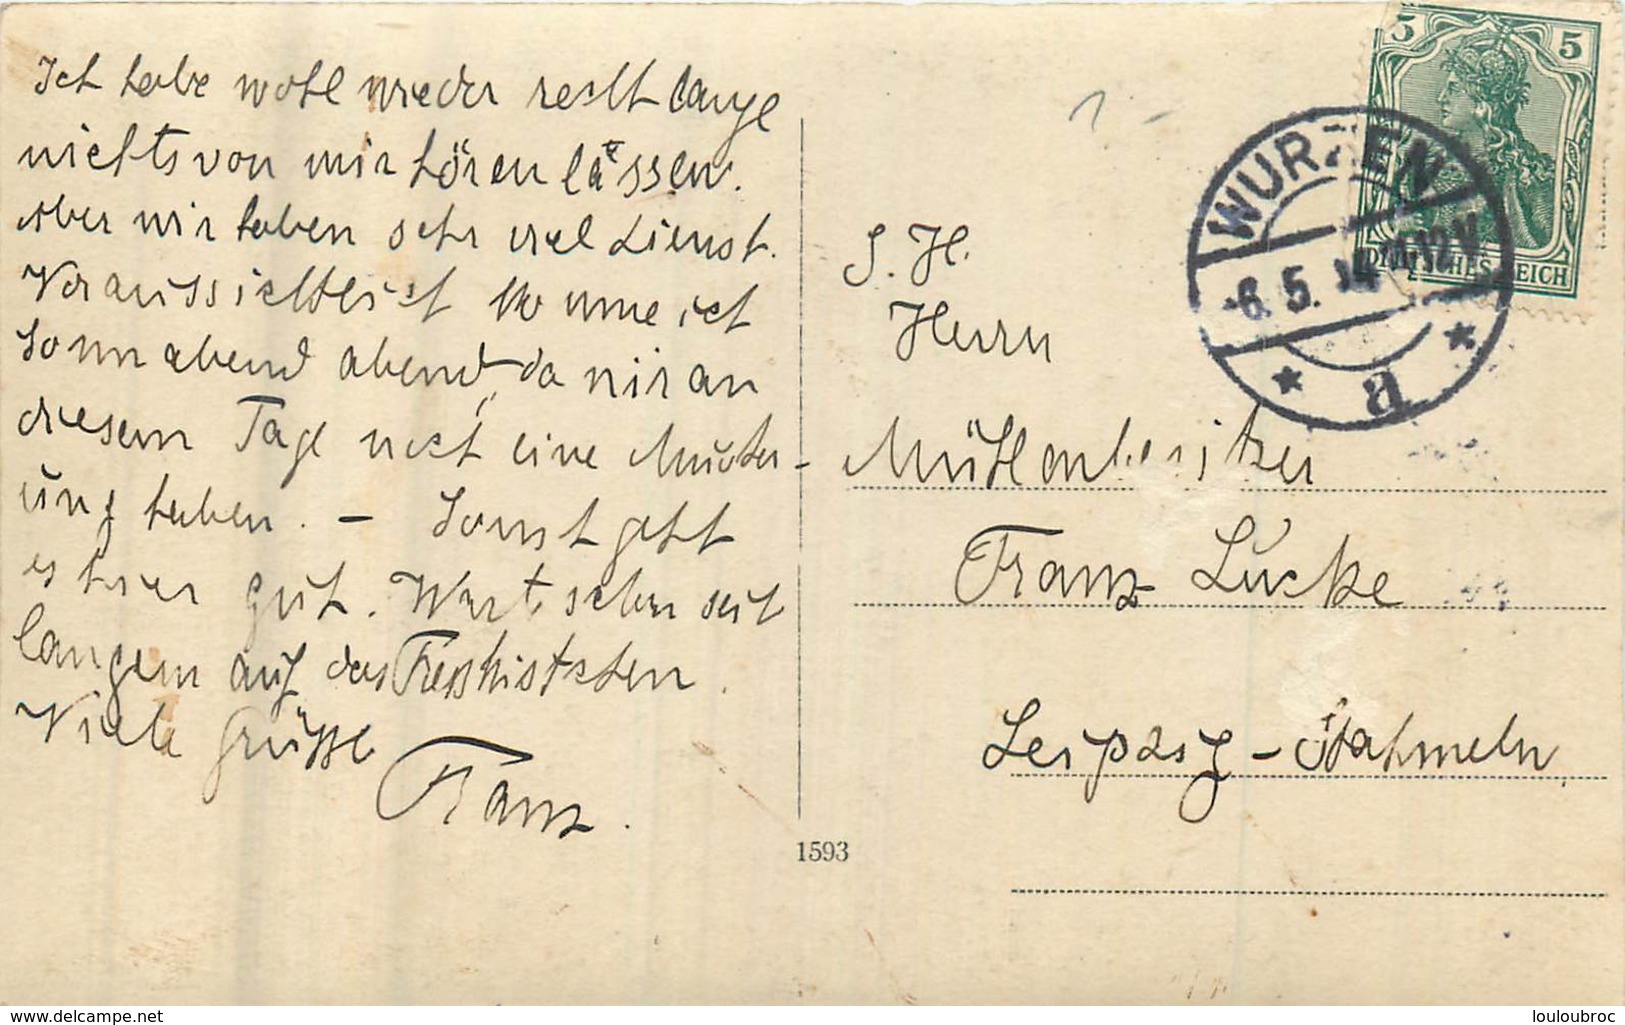 Ich habe wohl wieder recht lange
nichts von mir hören lassen.
Aber wir haben sehr viel Dienst.
Voraussichtlich komme ich
Sonnabend abend, da wir an
diesem Tage noch eine Muster-
ung haben. – Sonst geht
es hier gut. Warte schon seit
langem auf das Fresskistchen.
Viele Grüsse
Franz.
1593
S. H.
Herrn
Mühlenbesitzer
Franz Lücke
Leipzig – Stahmeln
1.-
WURZEN
6.5.14 11-12V
a
5 5
DEUTSCHES REICH
www.delcampe.net
louloubroc